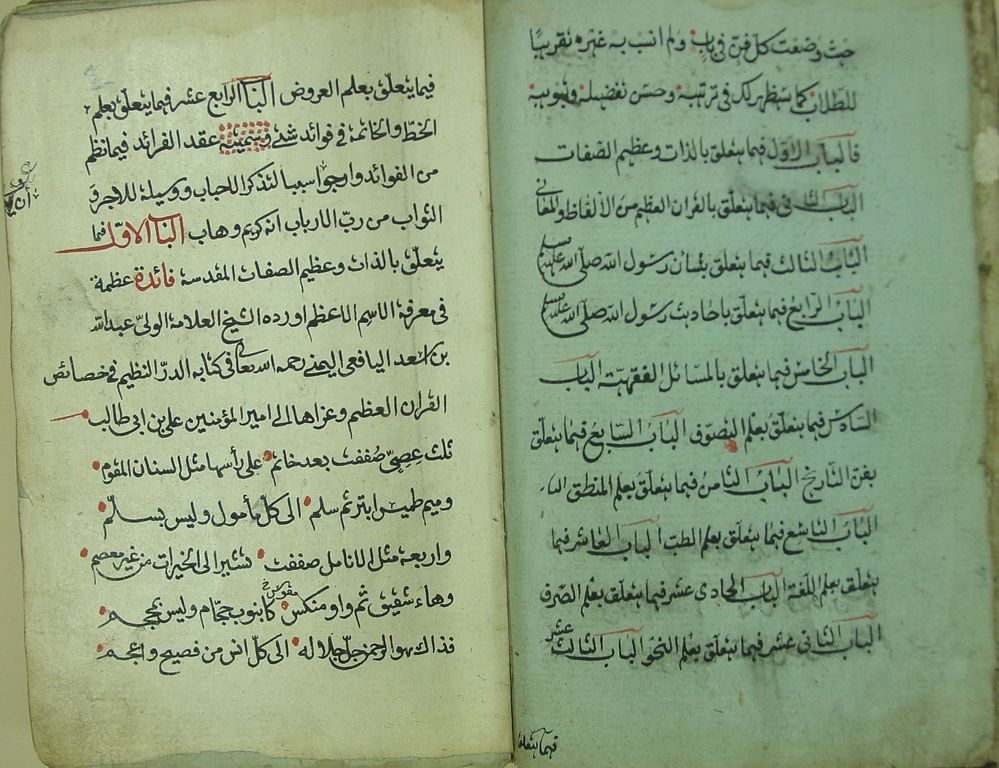 حيث وضعت كل فن في باب ولم انسب به غيره تقريبًا
للطلاب كما سيظهر لك في ترتيبه وحسن تفصيله وتبويبه
فالباب الاول فيما يتعلق بالذات وعظيم الصفات
الباب الثاني فيما يتعلق بالقران العظيم من الالفاظ والمعاني
الباب الثالث فيما يتعلق بشأن رسول الله صلى الله عليه وسلم
الباب الرابع فيما يتعلق باحاديث رسول الله صلى الله عليه وسلم
الباب الخامس فيما يتعلق بالمسائل الفقهية الباب
السادس فيما يتعلق بعلم التصوف الباب السابع فيما يتعلق
بفن التاريخ الباب الثامن فيما يتعلق بعلم المنطق
الباب التاسع فيما يتعلق بعلم الطب الباب العاشر فيما
يتعلق بعلم اللغة الباب الحادي عشر فيما يتعلق بعلم الصرف
الباب الثاني عشر فيما يتعلق بعلم النحو الباب الثالث عشر
فيما يتعلق
فيما يتعلق بعلم العروض الباب الرابع عشر فيما يتعلق بعلم
الخط والخاتمة في فوائد شتى وسميته عقد الفرائد فيما نظم
من الفوائد وارجو سببا لتذكر الاحباب ووسيلة للاجر و
الثواب من رب الارباب انه كريم وهاب الباب الاول فيما
يتعلق بالذات وعظيم الصفات المقدسة فائدة عظمة
في معرفة الاسم الاعظم اورده الشيخ العلامة الولي عبد الله
بن اسعد اليافعي اليمني رحمه الله تعالى في كتابه الدر النظيم في خصائص
القران العظيم وعزاها الى امير المؤمنين علي بن ابي طالب
ثلث عصي صففت بعد خاتم على رأسها مثل السنان المقوم
وميم طميس ابتر ثم سلم الى كل مأمول وليس بسلم
واربعة مثل الانامل صففت تشير الى الخيرات من غير معصم
وهاء شقيق ثم واو منكس مقوس كانبوب حجام وليس بمحجم
فذاك هو الرحمن جل جلاله الى كل انس من فصيح واعجم